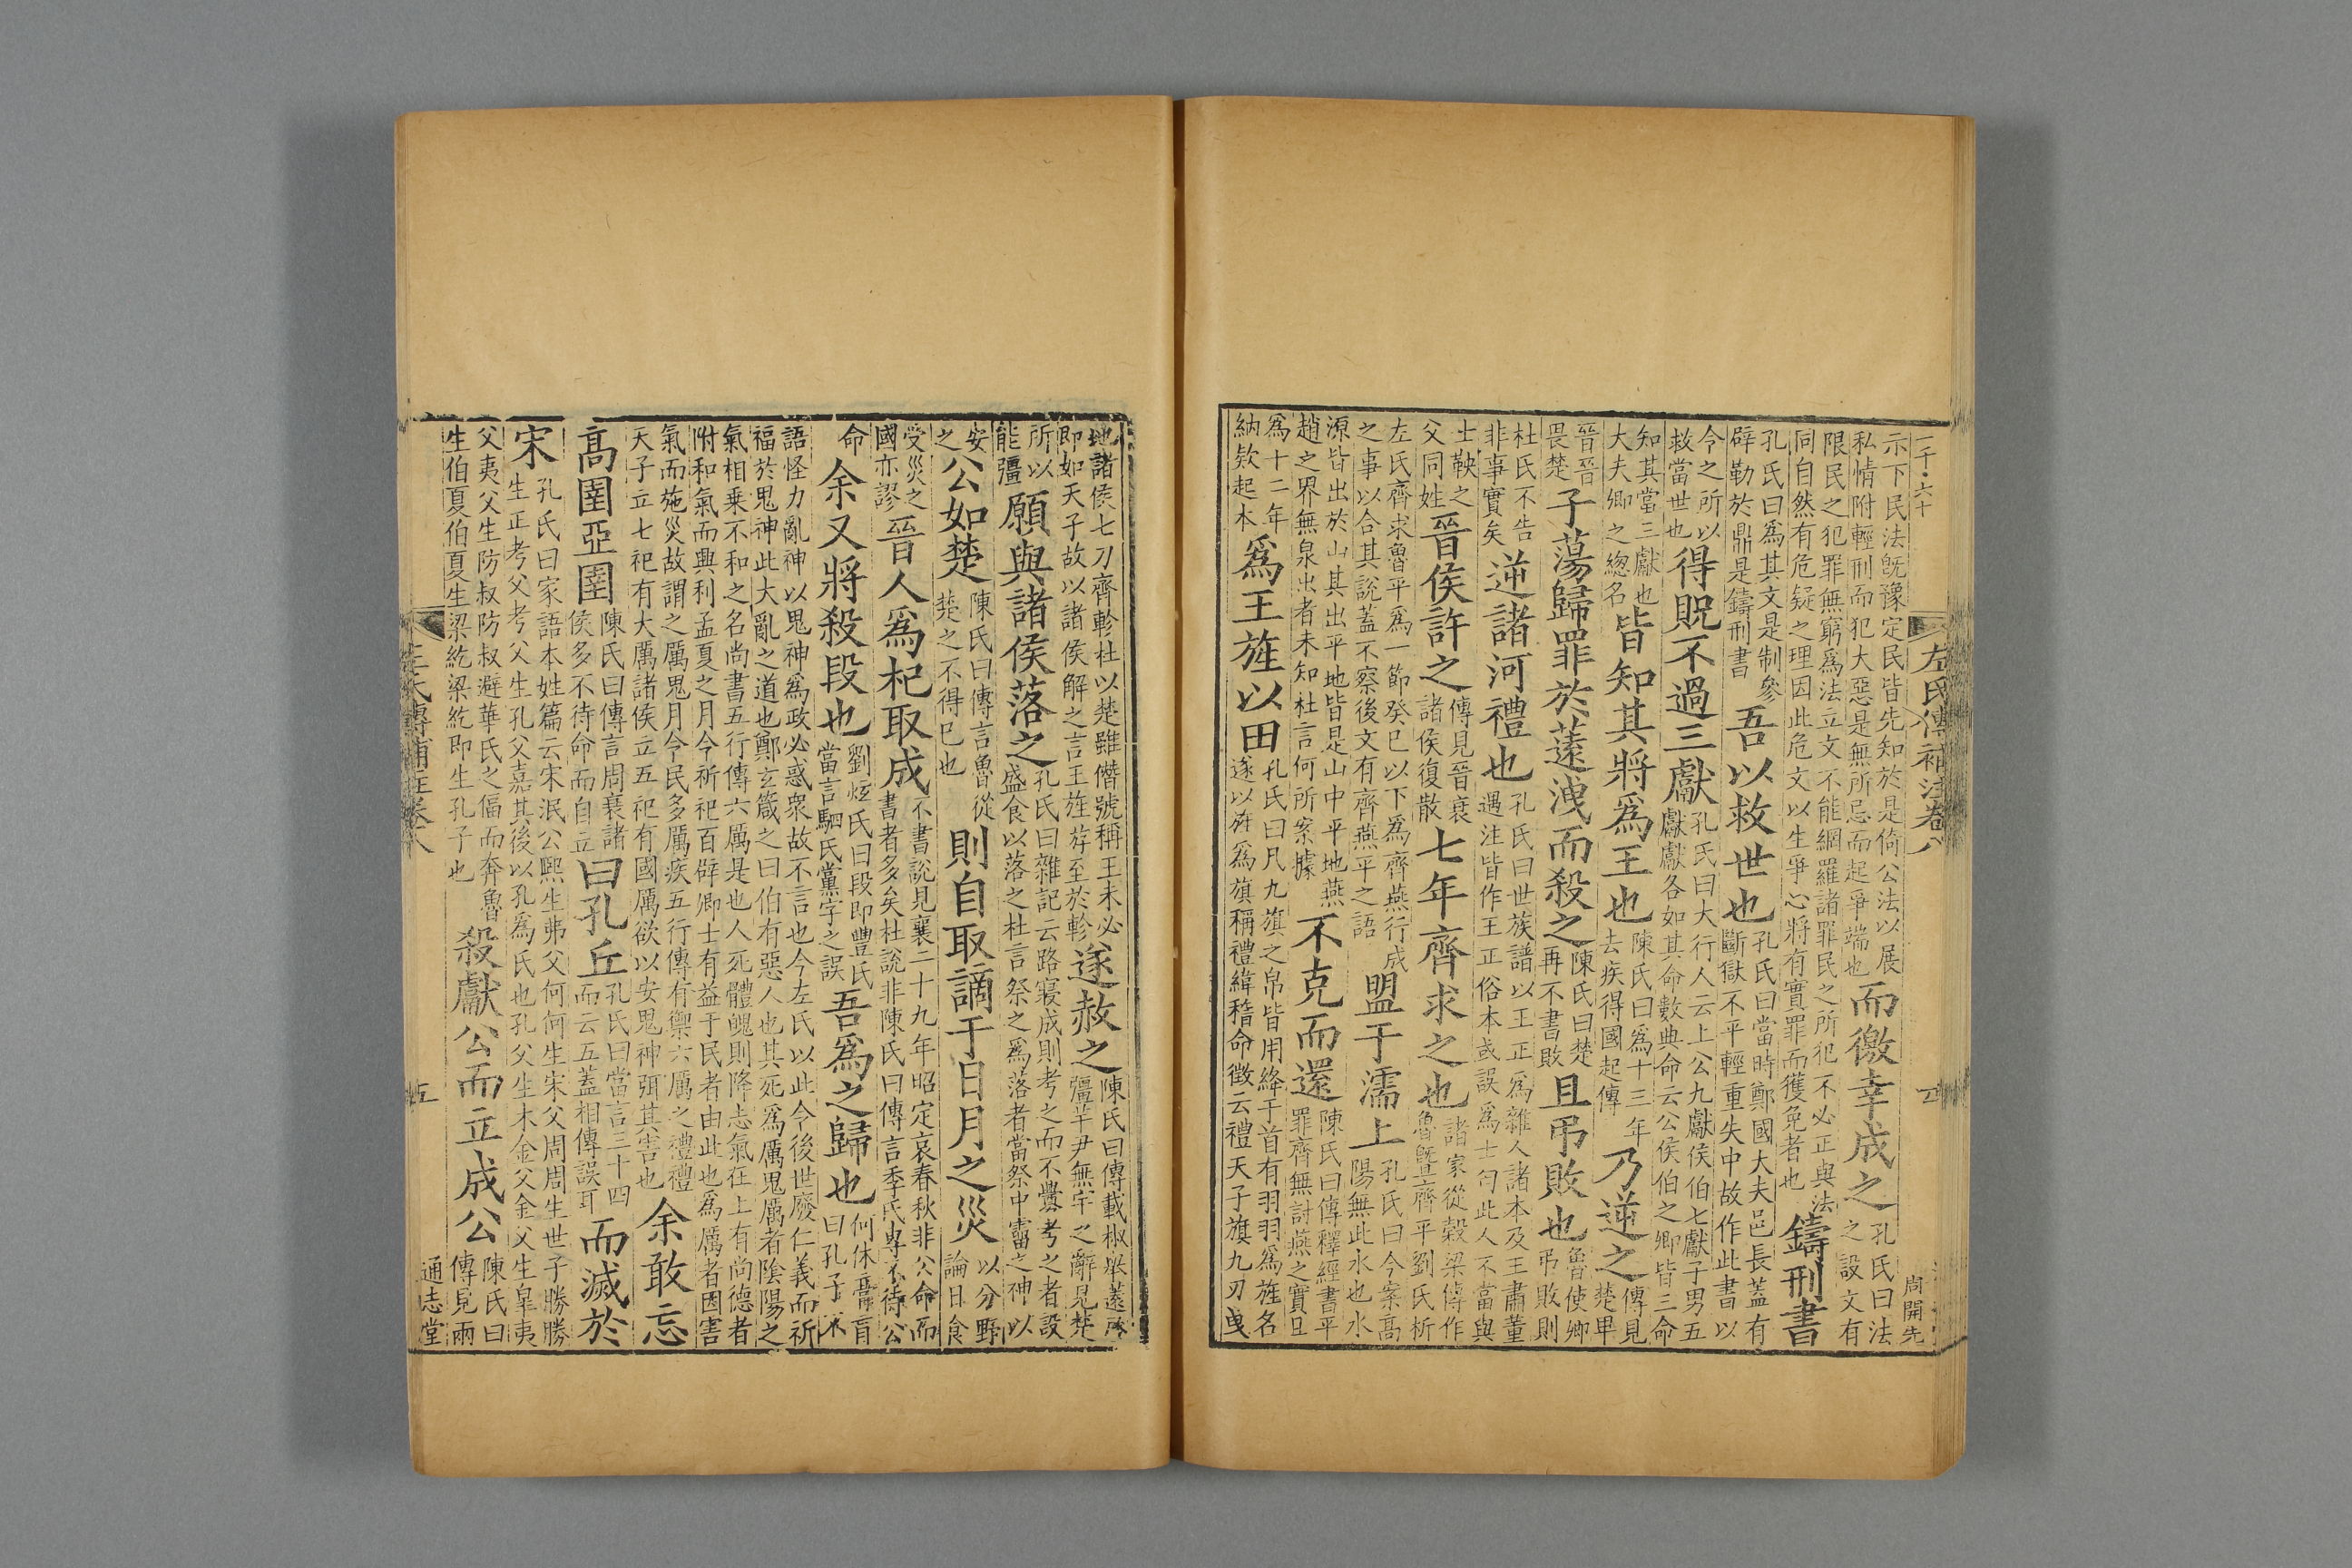 一千·六十
左氏傳補注卷八
六
周開先
示下民法既豫定民皆先知於是倚公法以展
私情附輕刑而犯大惡是無所忌而起爭端也
而徼幸成之
孔氏曰法
之設文有
限民之犯罪無窮爲法立文不能網羅諸罪民之所犯不必正與法
同自然有危疑之理因此危文以生爭心將有實罪而獲免者也
鑄刑書
孔氏曰爲其文是制參
辟勒於鼎是鑄刑書
吾以救世也
孔氏曰當時鄭國大夫邑長蓋有
斷獄不平輕重失中故作此書以
今之所以
救當世也
得貺不過三獻
孔氏曰大行人云上公九獻侯伯七獻子男五
獻獻各如其命數典命云公侯伯之卿皆三命
知其當三獻也
大夫卿之總名
皆知其將爲王也
陳氏曰爲十三年
去疾得國起傳
乃逆之
傳見
楚畢
晉晉
畏楚
子蕩歸罪於薳洩而殺之
陳氏曰楚
再不書敗
且弔敗也
魯使卿
弔敗則
杜氏不告
非事實矣
逆諸河禮也
孔氏曰世族譜以王正爲雜人諸本及王肅董
遇注皆作王正俗本或誤爲士匄此人不當與
士鞅之
父同姓
晉侯許之
傳見晉衰
諸侯復散
七年齊求之也
諸家從穀梁傳作
魯暨齊平劉氏析
左氏齊求魯平爲一節癸巳以下爲齊燕行成
之事以合其說蓋不察後文有齊燕平之語
盟于濡上
孔氏曰今案高
陽無此水也水
源皆出於山其出平地皆是山中平地燕
趙之界無泉出者未知杜言何所案據
不克而還
陳氏曰傳釋經書平
罪齊無討燕之實且
爲十二年
納欵起本
爲王旌以田
孔氏曰凡九旗之帛皆用絳干首有羽羽爲旌名
遂以旌爲旗稱禮緯稽命徵云禮天子旗九刃曳
地諸侯七刃齊軫杜以楚雖僭號稱王未必
即如天子故以諸侯解之言王旌斿至於軫
遂赦之
陳氏曰傳載椒舉薳啓
彊芊尹無宇之辭見楚
所以
能彊
願與諸侯落之
孔氏曰雜記云路寢成則考之而不釁考之者設
盛食以落之杜言祭之爲落者當祭中霤之神以
安
之
公如楚
陳氏曰傳言魯從
楚之不得已也
則自取謫于日月之災
以分野
論日食
受災之
國亦謬
晉人爲杞取成
不書說見襄二十九年昭定哀春秋非公命而
書者多矣杜說非陳氏曰傳言季氏專不待公
命
余又將殺段也
劉炫氏曰段即豐氏
當言駟氏黨字之誤
吾爲之歸也
何休膏肓
曰孔子不
語怪力亂神以鬼神爲政必惑衆故不言也今左氏以此令後世廢仁義而祈
福於鬼神此大亂之道也鄭玄箴之曰伯有惡人也其死爲厲鬼厲者陰陽之
氣相乘不和之名尚書五行傳六厲是也人死體魄則降志氣在上有尚德者
附和氣而興利孟夏之月令祈祀百辟卿士有益于民者由此也爲厲者因害
氣而施災故謂之厲鬼月令民多厲疾五行傳有禦六厲之禮禮
天子立七祀有大厲諸侯立五祀有國厲欲以安鬼神弭其害也
余敢忘
高圉亞圉
陳氏曰傳言周衰諸
侯多不待命而自立
曰孔丘
孔氏曰當言三十四
而云五蓋相傳誤耳
而滅於
宋
孔氏曰家語本姓篇云宋泯公熙生弗父何何生宋父周周生世子勝勝
生正考父考父生孔父嘉其後以孔爲氏也孔父生木金父金父生皐夷
父夷父生防叔防叔避華氏之偪而奔魯
生伯夏伯夏生梁紇梁紇即生孔子也
殺獻公而立成公
陳氏曰
傳見兩
左氏傳補注卷八
五
通志堂